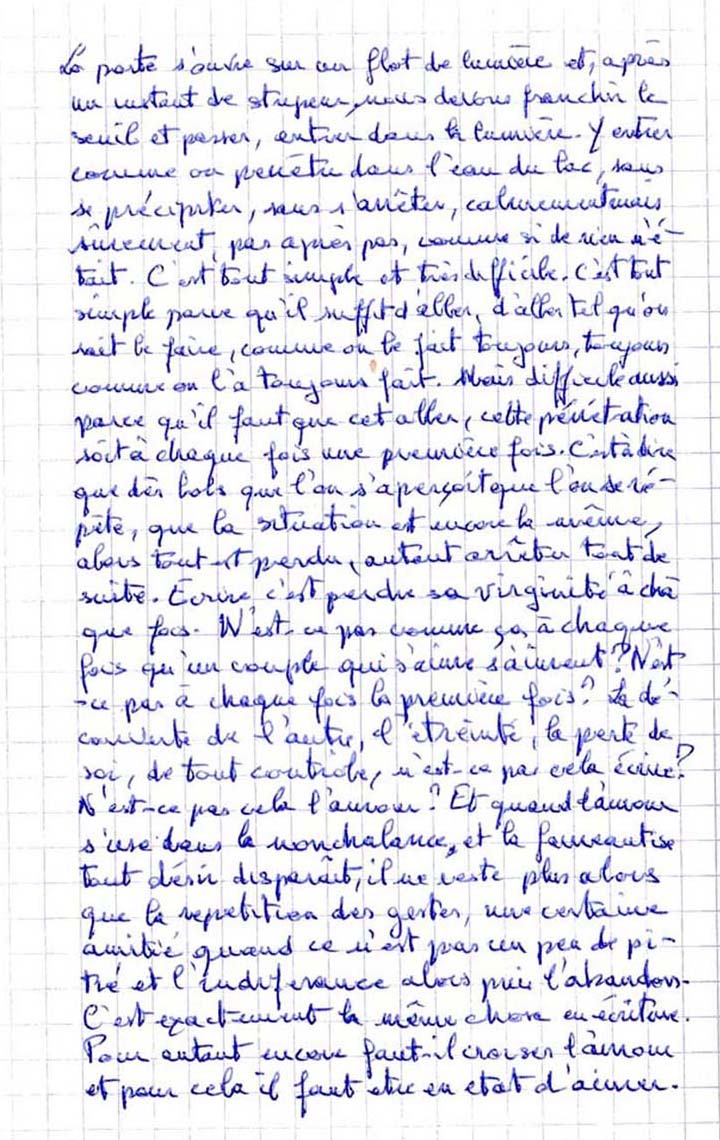 La porte s'ouvre sur un flot de lumière et, après
un instant de stupeur, nous devons franchir le
seuil et passer, entrer dans la lumière. Y entrer
comme on pénètre dans l'eau du lac, sans
se précipiter, sans s'arrêter, calmement mais
sûrement, pas après pas, comme si de rien n'é-
tait. C'est tout simple et très difficile. C'est tout
simple parce qu'il suffit d'aller, d'aller tel qu'on
sait le faire, comme on le fait toujours, toujours
comme on l'a toujours fait. Mais difficile aussi
parce qu'il faut que cet aller, cette pénétration
soit à chaque fois une première fois. C'est à dire
que dès lors que l'on s'aperçoit que l'on se ré-
pète, que la situation est encore la même,
alors tout est perdu, autant arrêter tout de
suite. Écrire c'est perdre sa virginité à cha
que fois. N'est-ce pas comme ça, à chaque
fois qu'un couple qui s'aime s'aiment? N'est
-ce pas à chaque fois la première fois? La dé-
couverte de l'autre, l'étreinte, la perte de
soi, de tout contrôle, n'est-ce pas cela écrire?
N'est-ce pas cela l'amour? Et quand l'amour
s'use dans la nonchalance, et la faineantise
tout désir disparaît, il ne reste plus alors
que la repetition des gestes, une certaine
amitié quand ce n'est pas un peu de pi-
tié et l'indiférance alors puis l'abandon.
C'est exactement la même chose en écriture.
Pour autant encore faut-il croiser l'amour
et pour cela il faut être en état d'aimer.